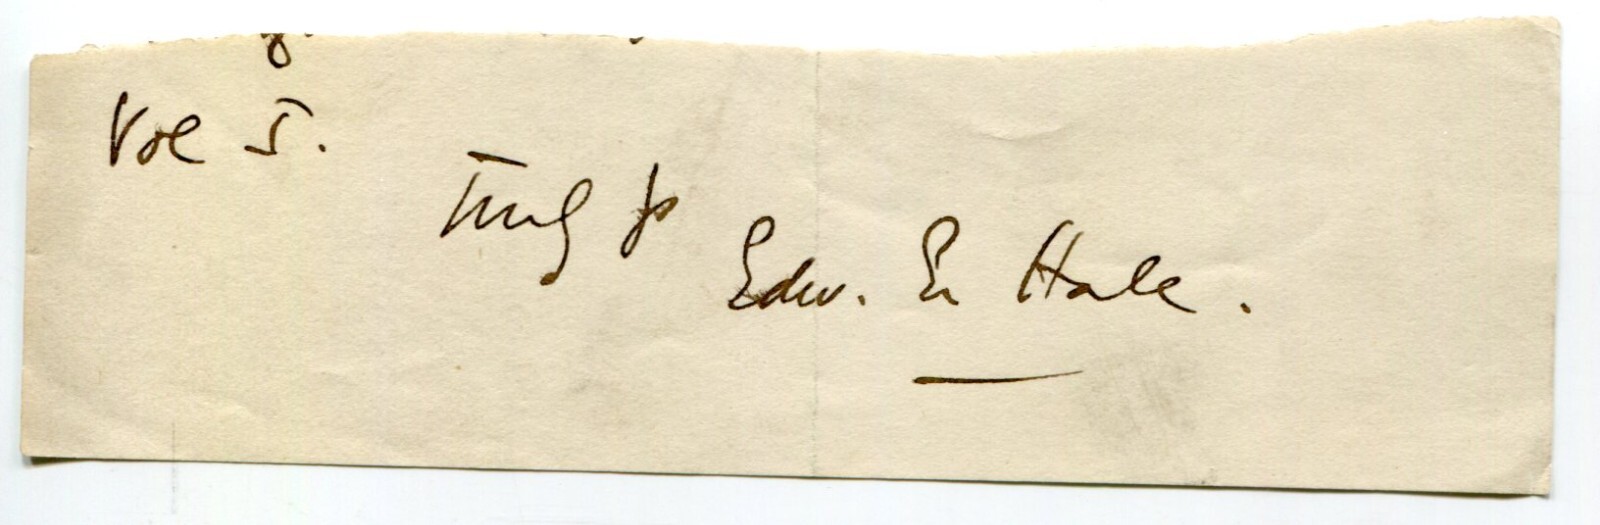 Vol 5.
Truly yrs
Edw. E. Hale.